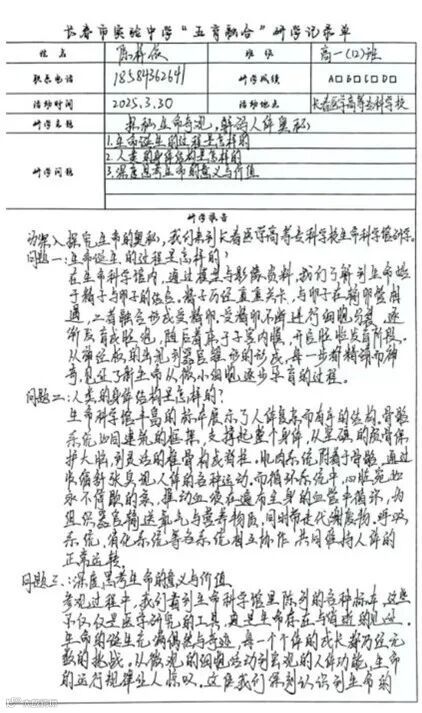 长春市实验中学“五育融合”研学记录单
姓名 班级 高一(12)班
联系电话 18584362641 研学成绩 A□ B□ C□ D□
活动时间 2025.3.30 活动地点 长春医学高等专科学校
研学主题 探秘生命奇观,解码人体奥秘
研学问题
1.生命诞生的过程是怎样的
2.人类的身体结构是怎样的
3.深度思考生命的意义与价值
研学报告
为深入探究生命的奥秘,我们来到长春医学高等专科学校生命科学馆研学。
问题一:生命诞生的过程是怎样的?
在生命科学馆内,通过模型与影像资料,我们了解到生命始
于精子与卵子的结合。精子历经重重关卡,与卵子在输卵管相
遇,二者融合形成受精卵。受精卵不断进行细胞分裂,逐
渐发育成胚泡,随后着床于子宫内膜,开启胚胎发育阶段。
从神经板的出现到器官雏形的形成,每一步都精谱而神
奇,见证了新生命从微小细胞逐步孕育的过程。
问题二:人类的身体结构是怎样的?
生命科学馆丰富的标本展示了人体复杂而有序的结构。骨骼
系统如同建筑的框架,支撑起整个身体,从坚硬的颅骨保
护大脑,到灵活的椎骨构成脊柱。肌肉系统附着于骨骼,通过
收缩舒张实现人体的各种运动。而循环系统中,心脏宛如
永不停歇的泵,推动血液在遍布全身的血管中循环,为
组织器官输送氧气与营养物质,同时带走代谢废物。呼吸
系统,消化系统等各系统相互协作,共同维持人体的
正常运转。
问题三:深度思考生命的意义与价值
参观过程中,我们看到生命科学馆里陈列的各种标本,这些
不仅仅是医学研究的工具,更是生命存在与消逝的见证。
生命的诞生充满偶然与奇迹,每一个个体的成长都历经无
数的挑战。从微观的细胞活动到宏观的人体功能,生命
的运行规律让人惊叹。这使我们深刻认识到生命的